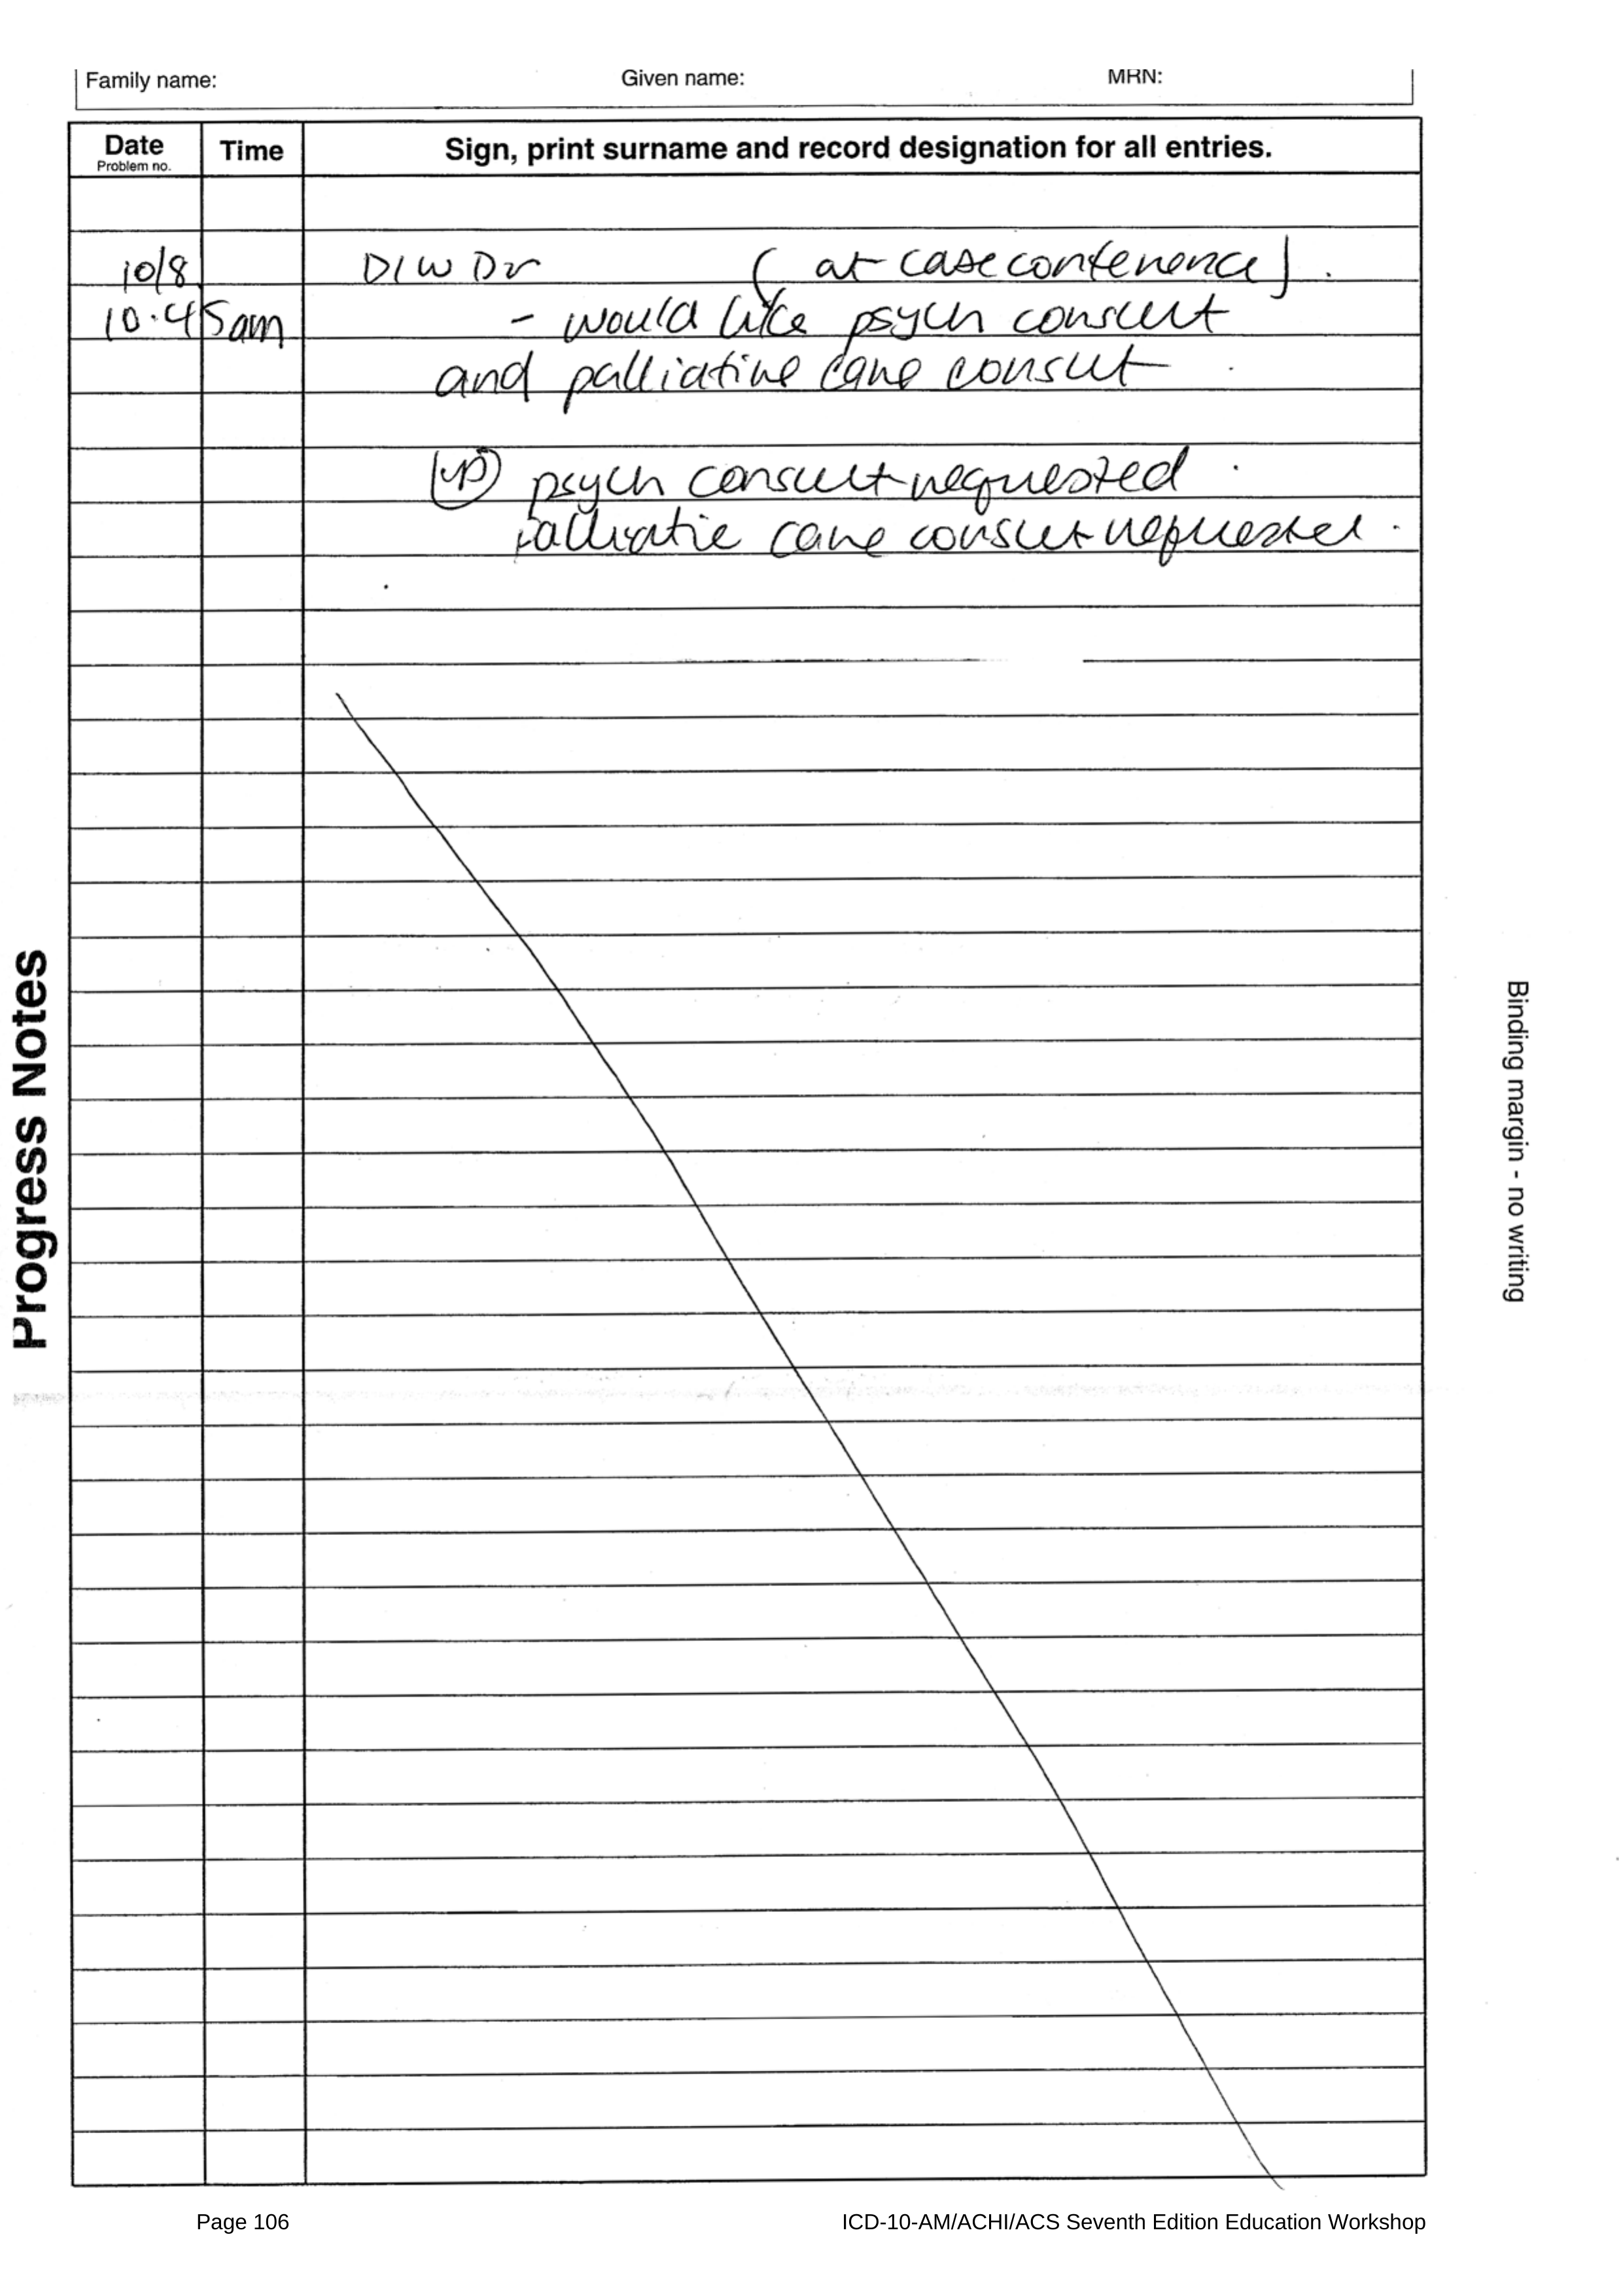 Family name: Given name: MRN:
Date Time Sign, print surname and record designation for all entries.
Problem no.
10/8 D/W Dr ( at case conference ) .
10.45am - would like psych consult
and palliative care consult
psych consult requested .
palliative care consult requested .
Progress Notes
Binding margin - no writing
Page 106 ICD-10-AM/ACHI/ACS Seventh Edition Education Workshop